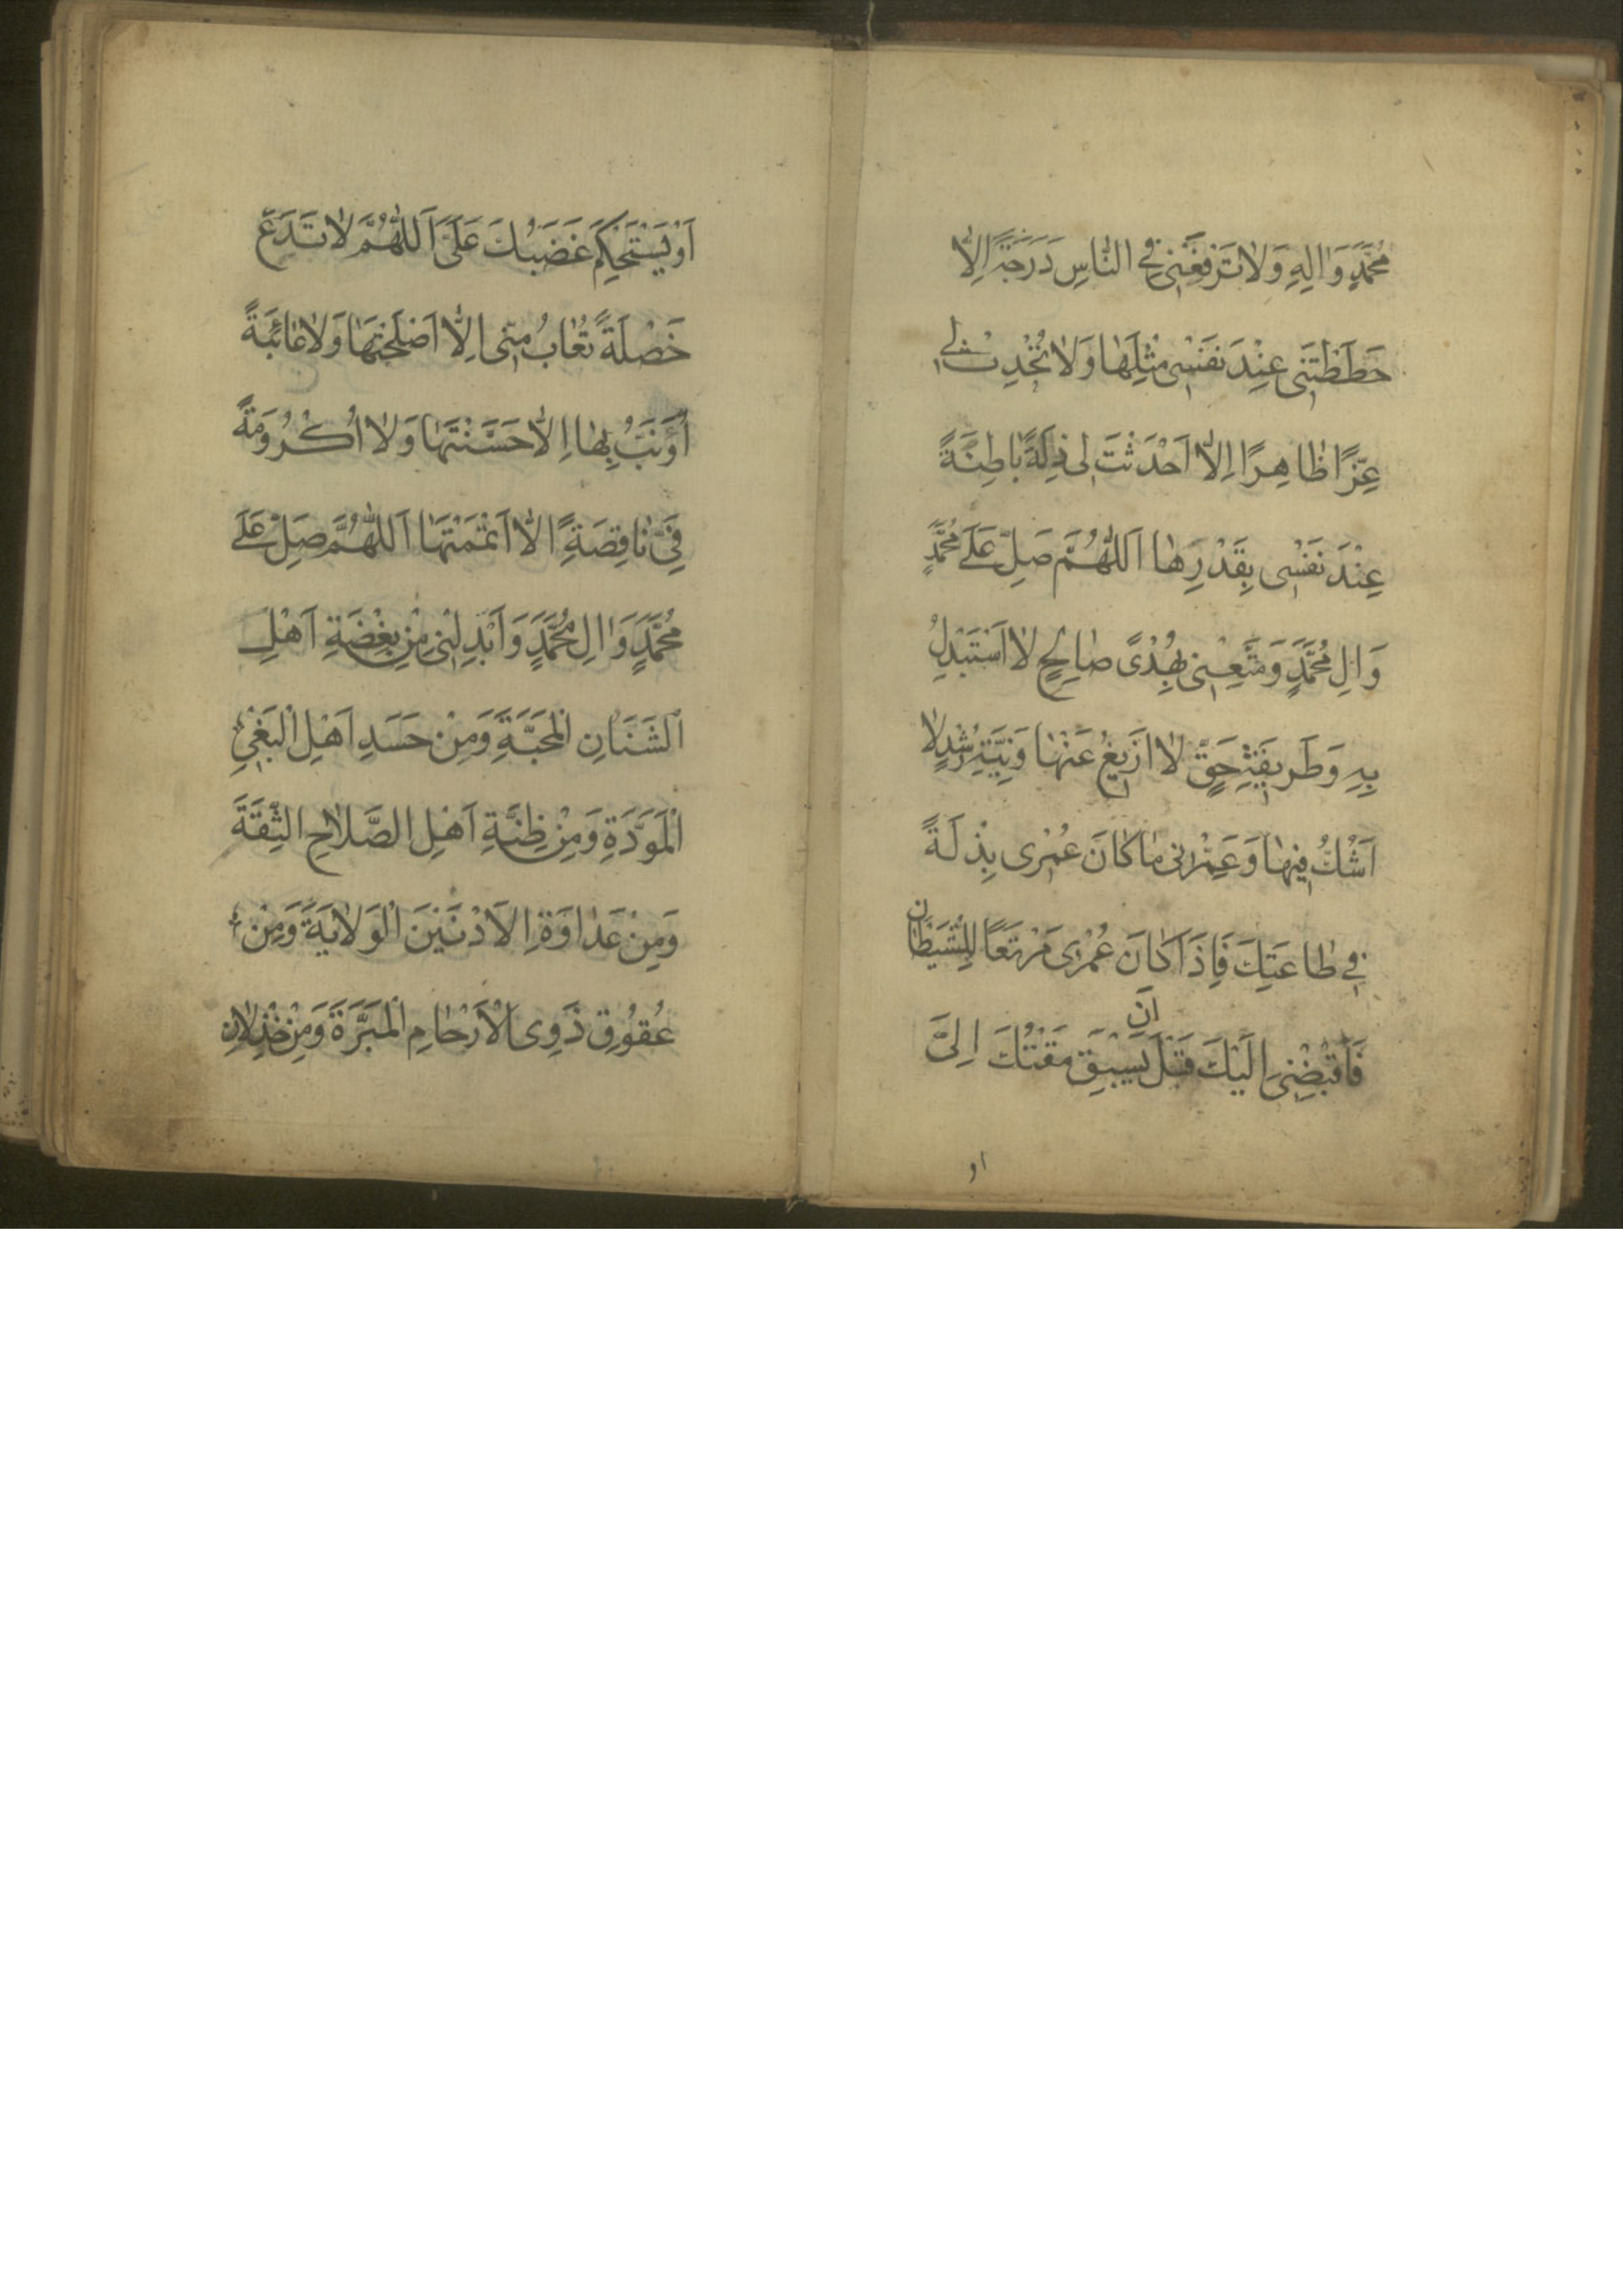 مُحَمَّدٍ وَاٰلِهِ وَلاٰ تَرْفَعْنِی فِی النّٰاسِ دَرَجَةً اِلاّٰ
حَطَطْتَنِی عِنْدَ نَفْسِی مِثْلَهٰا وَلاٰ تُحْدِثْ لِی
عِزًّا ظٰاهِرًا اِلاّٰ اَحْدَثْتَ لِی ذِلَّةً بٰاطِنَةً
عِنْدَ نَفْسِی بِقَدَرِهٰا اَللّٰهُمَّ صَلِّ عَلَی مُحَمَّدٍ
وَاٰلِ مُحَمَّدٍ وَمَتِّعْنِی بِهُدًی صٰالِحٍ لاٰ اَسْتَبْدِلُ
بِهِ وَطَرِیقَةِ حَقٍّ لاٰ اَزِیغُ عَنْهٰا وَنِیَّةِ رُشْدٍ لاٰ
اَشُکُّ فِیهٰا وَعَمِّرْنِی مٰا کٰانَ عُمْرِی بِذْلَةً
فِی طٰاعَتِكَ فَاِذَا کٰانَ عُمْرِی مَرْتَعًا لِلشَّیْطٰانِ
فَاقْبِضْنِی اِلَیْكَ قَبْلَ اَنْ یَسْبِقَ مَقْتُكَ اِلَیَّ
او
اَوْ یَسْتَحْکِمَ غَضَبُكَ عَلَیَّ اَللّٰهُمَّ لاٰ تَدَعْ
خَصْلَةً تُعٰابُ مِنِّی اِلاّٰ اَصْلَحْتَهٰا وَلاٰ عٰائِبَةً
اُؤَنَّبُ بِهٰا اِلاّٰ حَسَّنْتَهٰا وَلاٰ اُکْرُومَةً
فِیَّ نٰاقِصَةً اِلاّٰ اَتْمَمْتَهٰا اَللّٰهُمَّ صَلِّ عَلَی
مُحَمَّدٍ وَاٰلِ مُحَمَّدٍ وَاَبْدِلْنِی مِنْ بِغْضَةِ اَهْلِ
الشَّنَاٰنِ الْمَحَبَّةَ وَمِنْ حَسَدِ اَهْلِ الْبَغْیِ
الْمَوَدَّةَ وَمِنْ ظِنَّةِ اَهْلِ الصَّلاٰحِ الثِّقَةَ
وَمِنْ عَدٰاوَةِ الاَدْنَیْنَ الْوَلاٰیَةَ وَمِنْ
عُقُوقِ ذَوِی الْاَرْحٰامِ الْمَبَرَّةَ وَمِنْ خِذْلاٰنِ